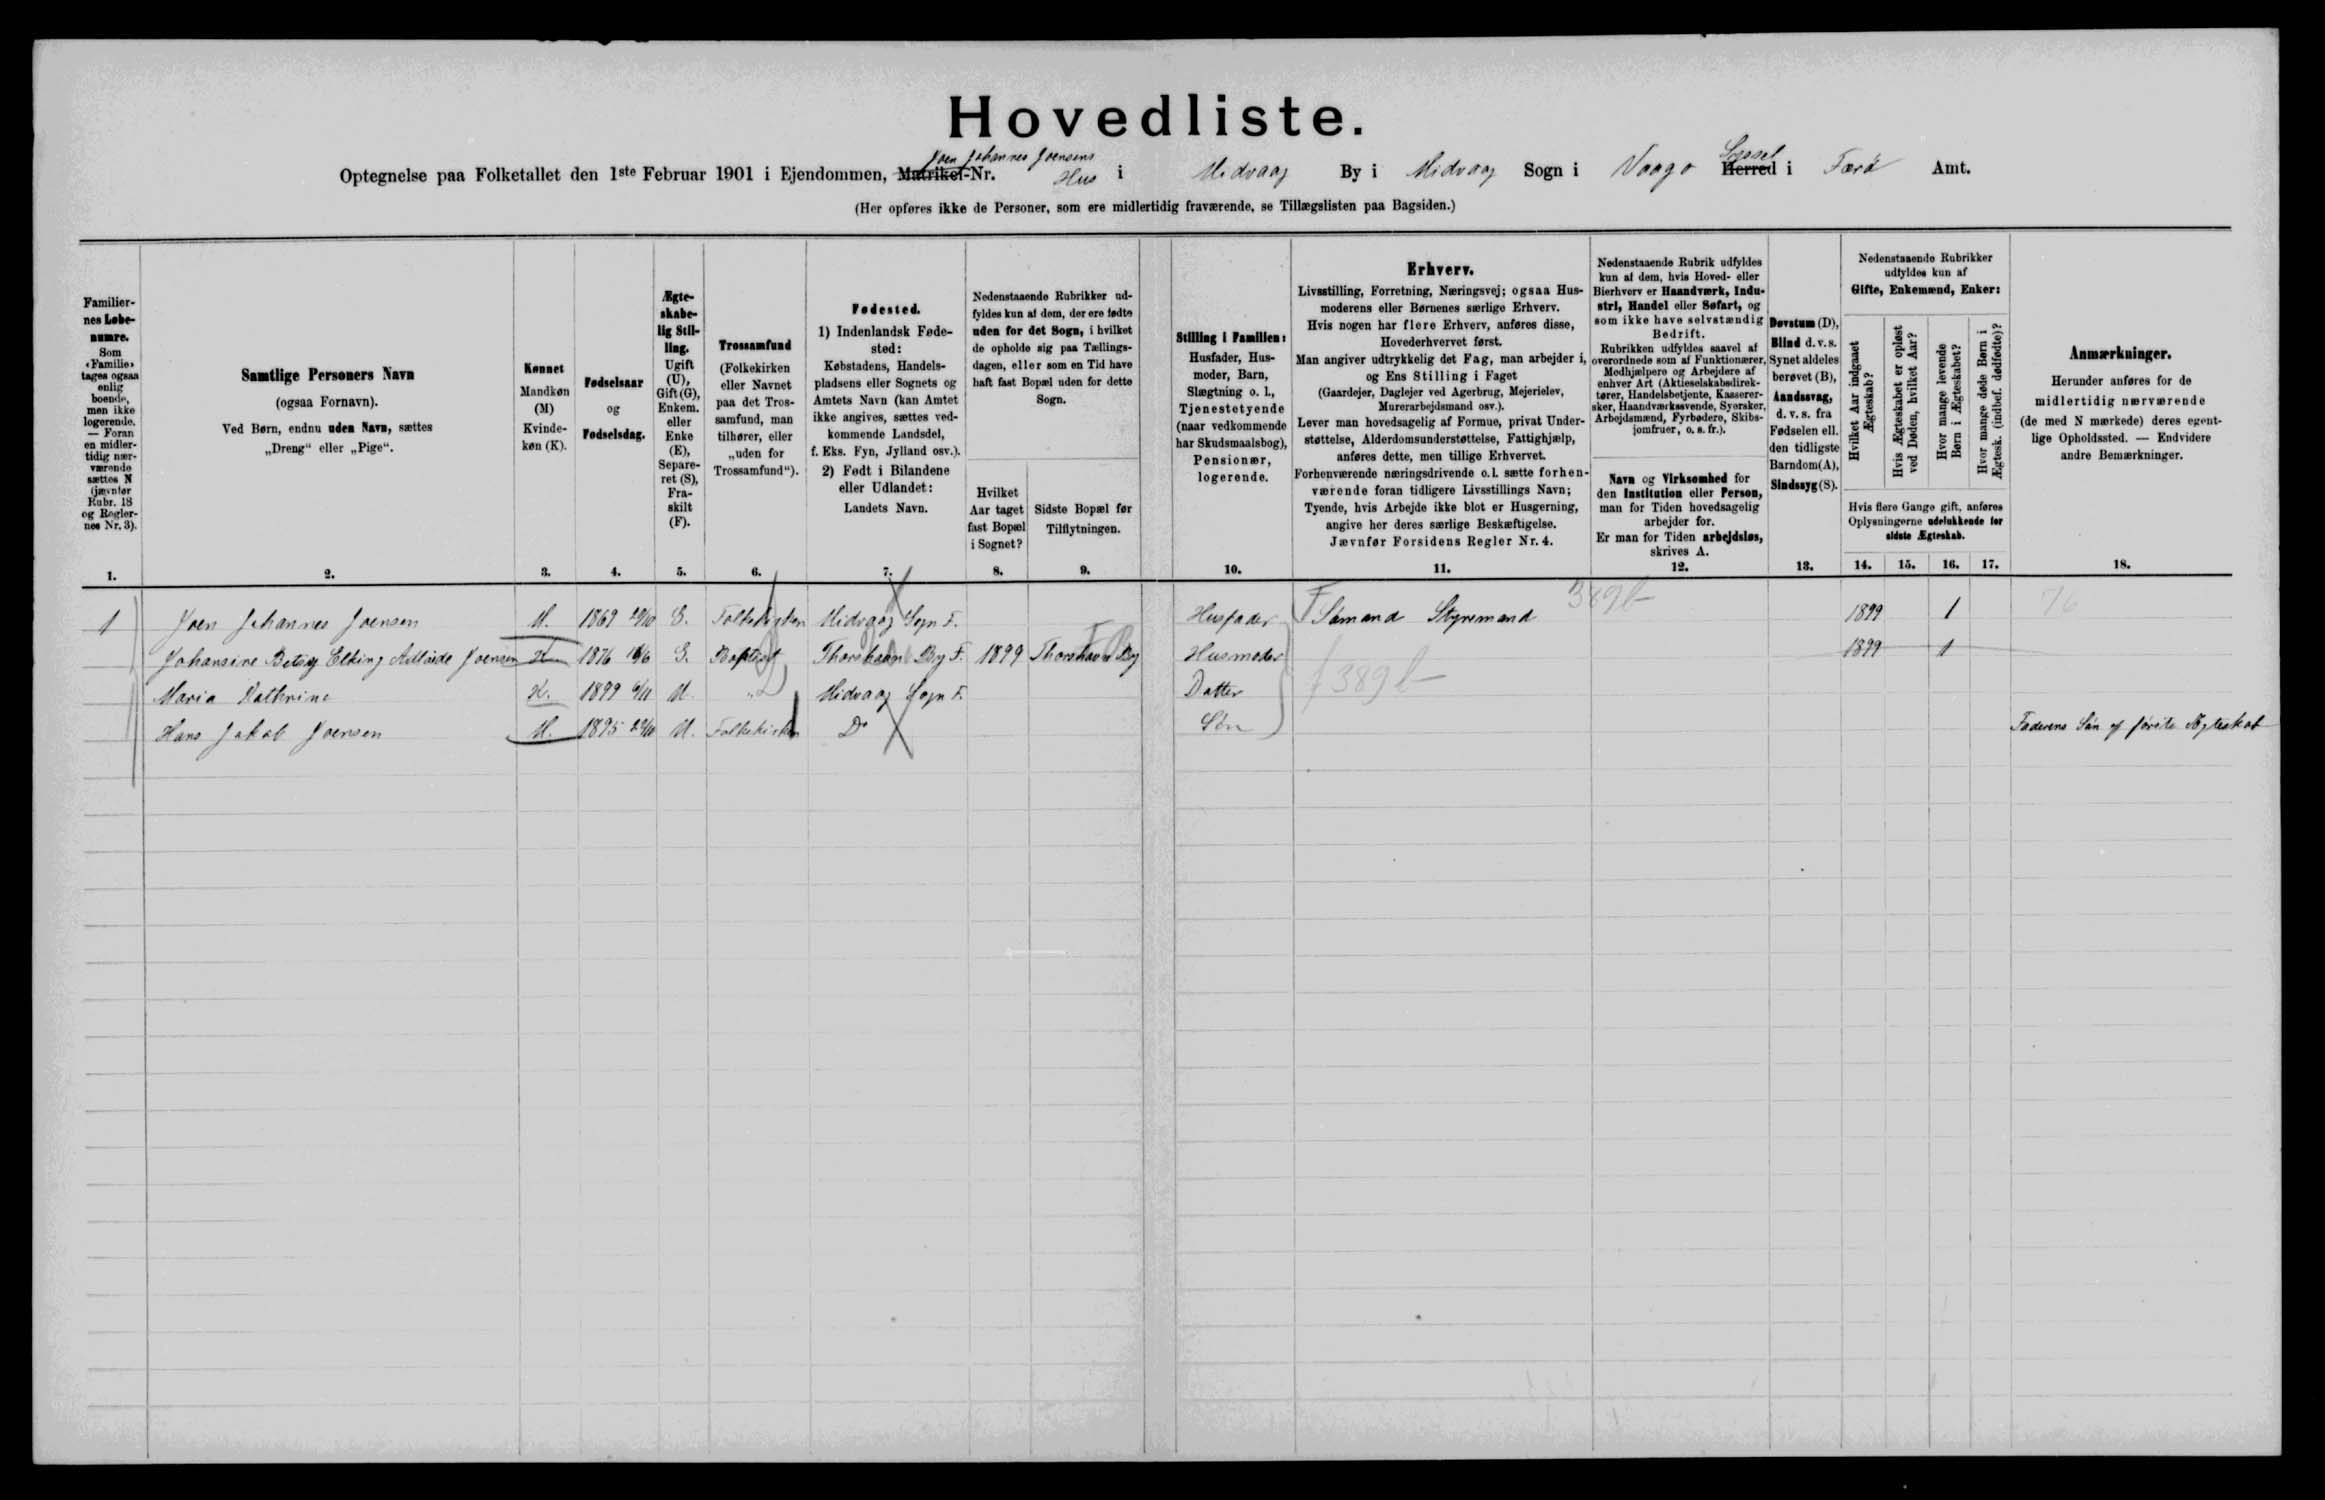 Hovedliste.
Joen Johannes Joensens Syssel
Optegnelse paa Folketallet den 1ste Februar 1901 i Ejendommen, Matrikel-Nr. Hus i Midvaag By i Midvaag Sogn i Vaagø Herred i Færö Amt.
(Her opføres ikke de Personer, som ere midlertidig fraværende, se Tillægslisten paa Bagsiden.)
Familier-
nes Løbe-
numre.
Som
«Familie»
tages ogsaa
enlig
boende,
men ikke
logerende.
— Foran
en midler-
tidig nær-
værende
sættes N
(jævnfør
Rubr. 18
og Regler-
nes Nr. 3).
1.
Samtlige Personers Navn
(ogsaa Fornavn).
Ved Børn, endnu uden Navn, sættes
„Dreng“ eller „Pige“.
2.
Kønnet
Mandkøn
(M)
Kvinde-
køn (K).
3.
Fødselsaar
og
Fødselsdag.
4.
Ægte-
skabe-
lig Stil-
ling.
Ugift
(U),
Gift (G),
Enkem.
eller
Enke
(E),
Separe-
ret (S),
Fra-
skilt
(F).
5.
Trossamfund
(Folkekirken
eller Navnet
paa det Tros-
samfund, man
tilhører, eller
„uden for
Trossamfund“).
6.
Fødested.
1) Indenlandsk Føde-
sted:
Købstadens, Handels-
pladsens eller Sognets og
Amtets Navn (kan Amtet
ikke angives, sættes ved-
kommende Landsdel,
f. Eks. Fyn, Jylland osv.).
2) Født i Bilandene
eller Udlandet:
Landets Navn.
7.
Nedenstaaende Rubrikker ud-
fyldes kun af dem, der ere fødte
uden for det Sogn, i hvilket
de opholde sig paa Tællings-
dagen, eller som en Tid have
haft fast Bopæl uden for dette
Sogn.
Hvilket
Aar taget
fast Bopæl
i Sognet?
8.
Sidste Bopæl før
Tilflytningen.
9.
Stilling i Familien:
Husfader, Hus-
moder, Barn,
Slægtning o. l.,
Tjenestetyende
(naar vedkommende
har Skudsmaalsbog),
Pensionær,
logerende.
10.
Erhverv.
Livsstilling, Forretning, Næringsvej; ogsaa Hus-
moderens eller Børnenes særlige Erhverv.
Hvis nogen har flere Erhverv, anføres disse,
Hovederhvervet først.
Man angiver udtrykkelig det Fag, man arbejder i,
og Ens Stilling i Faget
(Gaardejer, Daglejer ved Agerbrug, Mejerielev,
Murerarbejdsmand osv.).
Lever man hovedsagelig af Formue, privat Under-
støttelse, Alderdomsunderstøttelse, Fattighjælp,
anføres dette, men tillige Erhvervet.
Forhenværende næringsdrivende o. l. sætte forhen-
værende foran tidligere Livsstillings Navn;
Tyende, hvis Arbejde ikke blot er Husgerning,
angive her deres særlige Beskæftigelse.
Jævnfør Forsidens Regler Nr. 4.
11.
Nedenstaaende Rubrik udfyldes
kun af dem, hvis Hoved- eller
Bierhverv er Haandværk, Indu-
stri, Handel eller Søfart, og
som ikke have selvstændig
Bedrift.
Rubrikken udfyldes saavel af
overordnede som af Funktionærer,
Medhjælpere og Arbejdere af
enhver Art (Aktieselskabsdirek-
tører, Handelsbetjente, Kasserer-
sker, Haandværkssvende, Syersker,
Arbejdsmænd, Fyrbødere, Skibs-
jomfruer, o. s. fr.).
Navn og Virksomhed for
den Institution eller Person,
man for Tiden hovedsagelig
arbejder for.
Er man for Tiden arbejdsløs,
skrives A.
12.
Døvstum (D),
Blind d. v. s.
Synet aldeles
berøvet (B),
Aandssvag,
d. v. s. fra
Fødselen ell.
den tidligste
Barndom (A),
Sindssyg (S).
13.
Nedenstaaende Rubrikker
udfyldes kun af
Gifte, Enkemænd, Enker:
Hvilket Aar indgaaet
Ægteskab?
Hvis Ægteskabet er opløst
ved Døden, hvilket Aar?
Hvor mange levende
Børn i Ægteskabet?
Hvor mange døde Børn i
Ægtesk. (indbef. dødfødte)?
Hvis flere Gange gift, anføres
Oplysningerne udelukkende for
sidste Ægteskab.
14. 15. 16. 17.
Anmærkninger.
Herunder anføres for de
midlertidig nærværende
(de med N mærkede) deres egent-
lige Opholdssted. — Endvidere
andre Bemærkninger.
18.
1 Joen Johannes Joensen M. 1869 G. Folkekirken Midvaag Sogn F. Husfader F Sömand Styremand 389 b 1899 1 76
Johansine Betsy Elking Joensen K 1876 G. Baptist Thorshavn By F. 1899 Thorshavn By Husmoder 1899 1
Maria Kathrine K. 1899 6/11 U. „ Midvaag Sogn F. Datter 389 b
Hans Jakob Joensen M. 1895 U. Folkekirken Do Sön Faderens Sön af förste Ægteskab